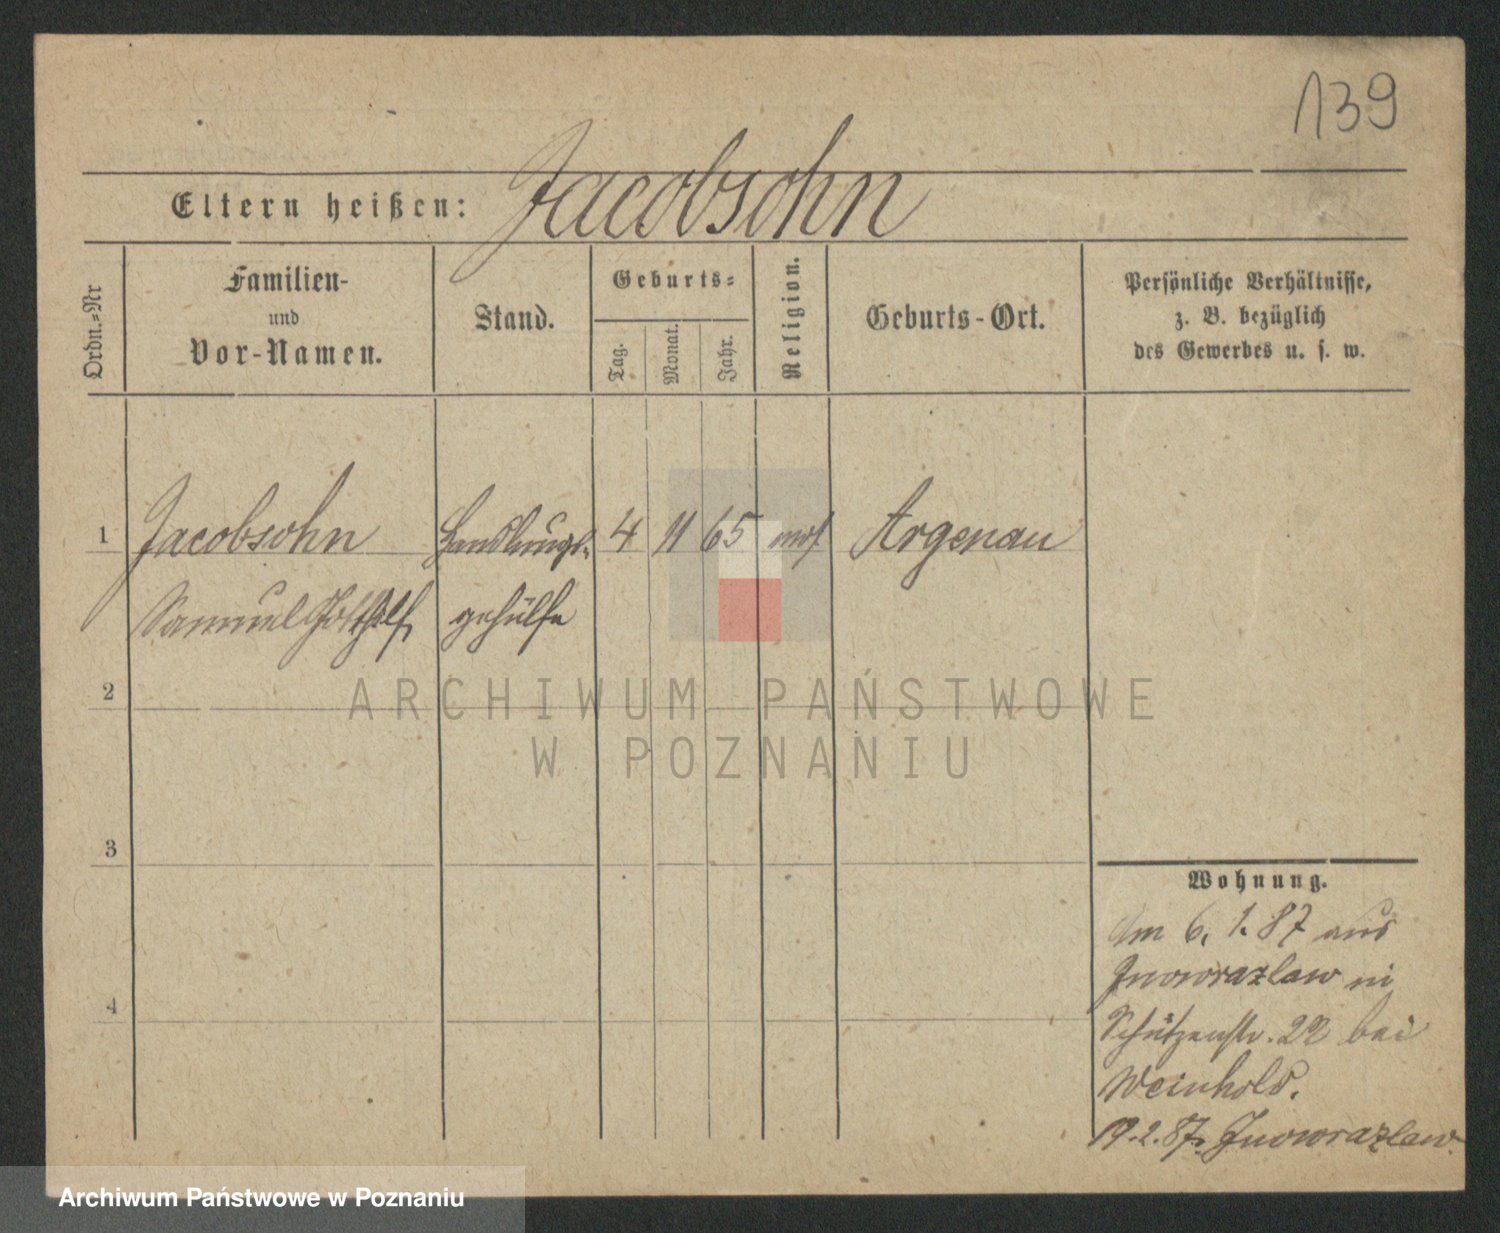 139
Eltern heißen: Jacobsohn
Ordn.=Nr
Familien-
und
Vor-Namen.
Stand.
Geburts=
Tag.
Monat.
Jahr.
Religion.
Geburts-Ort.
Persönliche Verhältnisse,
z. B. bezüglich
des Gewerbes u. s. w.
1 Jacobsohn Handlungs- 4 11 65 mos. Argenau
Samuel Gotthilf gehülfe
2
3
4
Wohnung.
Am 6. 1. 87 aus
Inowrazlaw in
Schützenstr. 22 bei
Weinhold.
19.2.87. Inowrazlaw.
ARCHIWUM PAŃSTWOWE
W POZNANIU
Archiwum Państwowe w Poznaniu